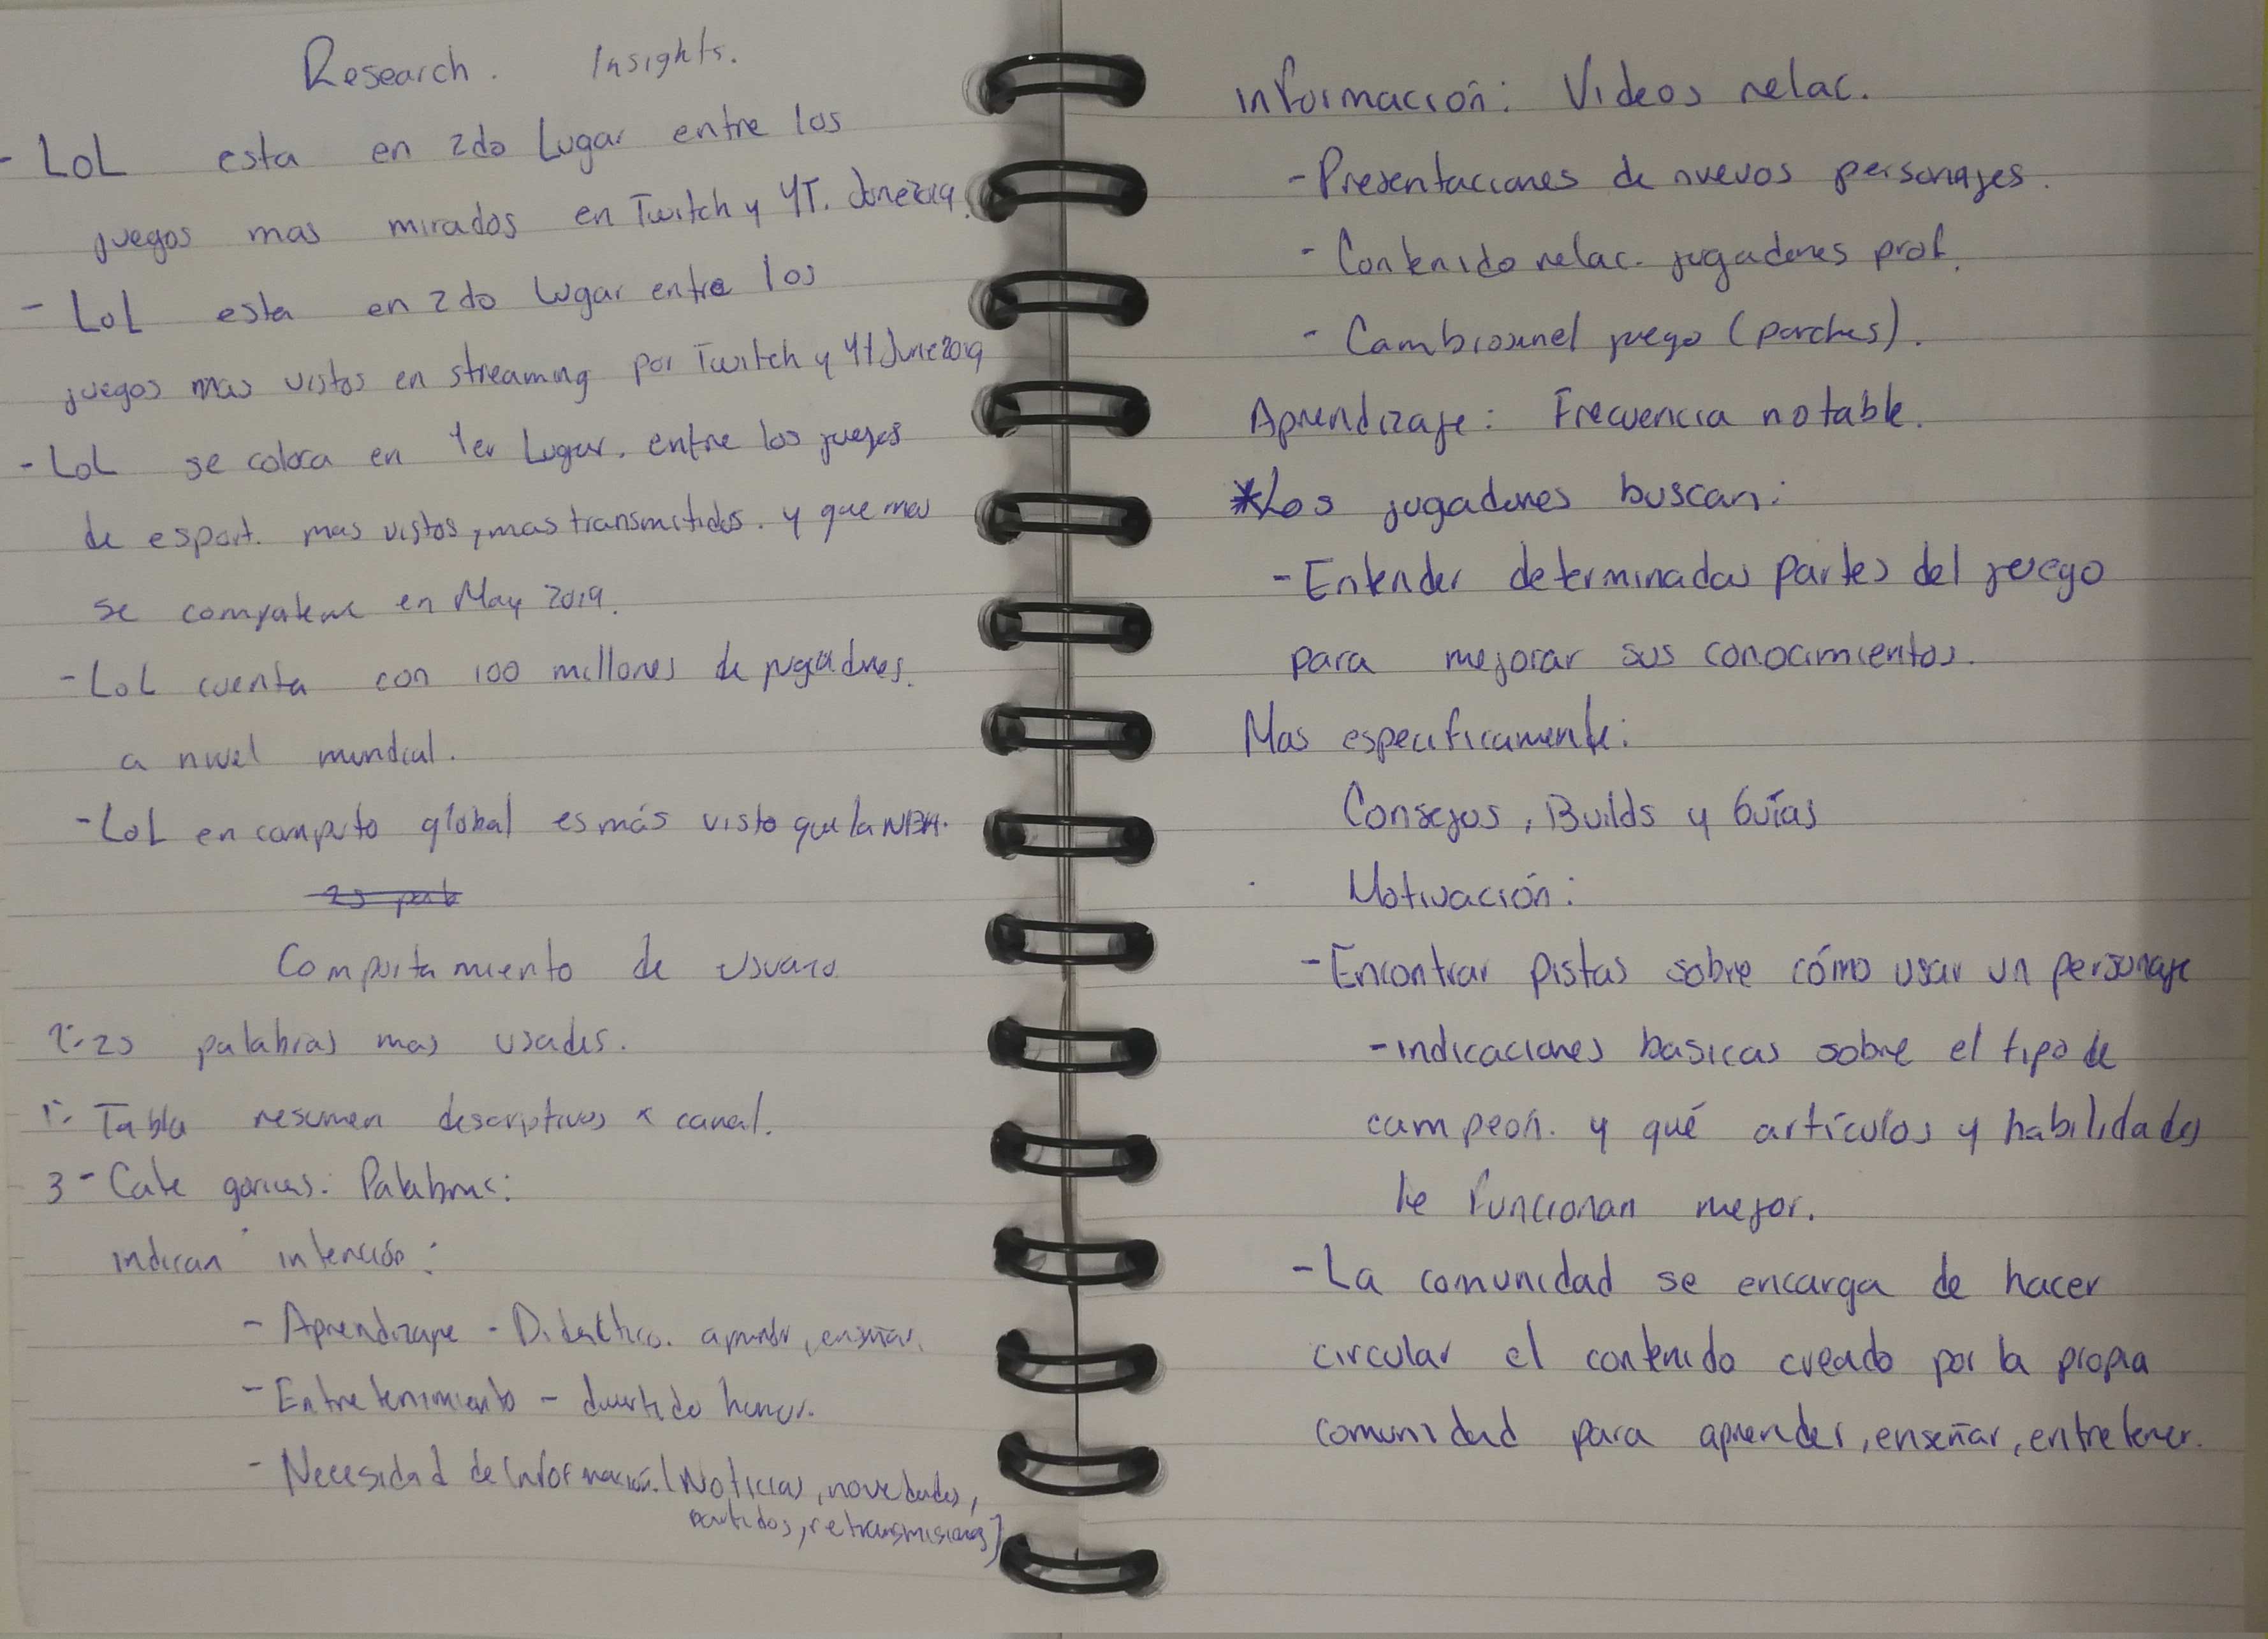 Research. Insights.
- LoL esta en 2do Lugar entre los
juegos mas mirados en Twitch y YT. June 2019.
- LoL esta en 2do lugar entre los
juegos mas vistos en streaming por Twitch y YT June 2019
- LoL se coloca en 1er Lugar. entre los juegos
de esport. mas vistos, mas transmitidos. y que mas
se en May 2019.
- LoL cuenta con 100 millones de jugadores.
a nivel mundial.
- LoL en computo global es más visto que la NBA.
Comportamiento de usuario
2- 25 palabras mas usadas.
1- Tabla resumen descriptivos x canal.
3- Categorias: Palabras:
indican intención:
- Aprendizaje - Didactico. aprender, enseñar.
- Entretenimiento - divertido humor.
- Necesidad de información. (Noticias, novedades,
partidos, retransmisiones)
información: Videos relac.
- Presentaciones de nuevos personajes.
- Contenido relac. jugadores prof.
- Cambios en el juego (parches).
Aprendizaje: Frecuencia notable.
*Los jugadores buscan:
- Entender determinadas partes del juego
para mejorar sus conocimientos.
Mas especificamente:
Consejos, Builds y Guías
Motivación:
- Encontrar pistas sobre cómo usar un personaje
- indicaciones basicas sobre el tipo de
campeon. y qué artículos y habilidades
le funcionan mejor.
- La comunidad se encarga de hacer
circular el contenido creado por la propia
comunidad para aprender, enseñar, entretener.